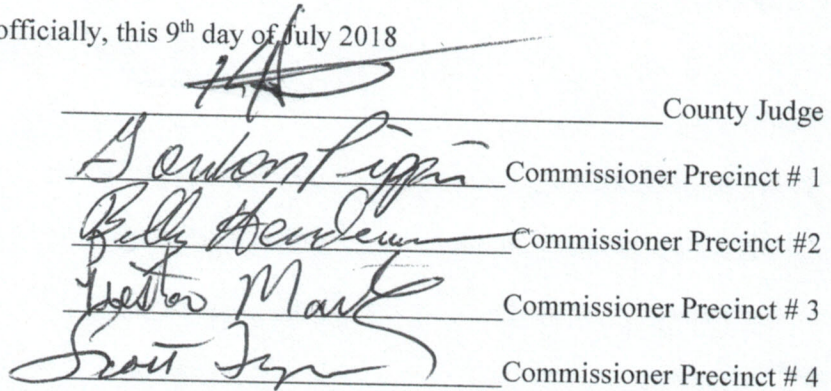 officially, this 9th day of July 2018
County Judge
Gordon Pippin Commissioner Precinct # 1
Billy Henderson Commissioner Precinct #2
Commissioner Precinct # 3
Scott Commissioner Precinct # 4